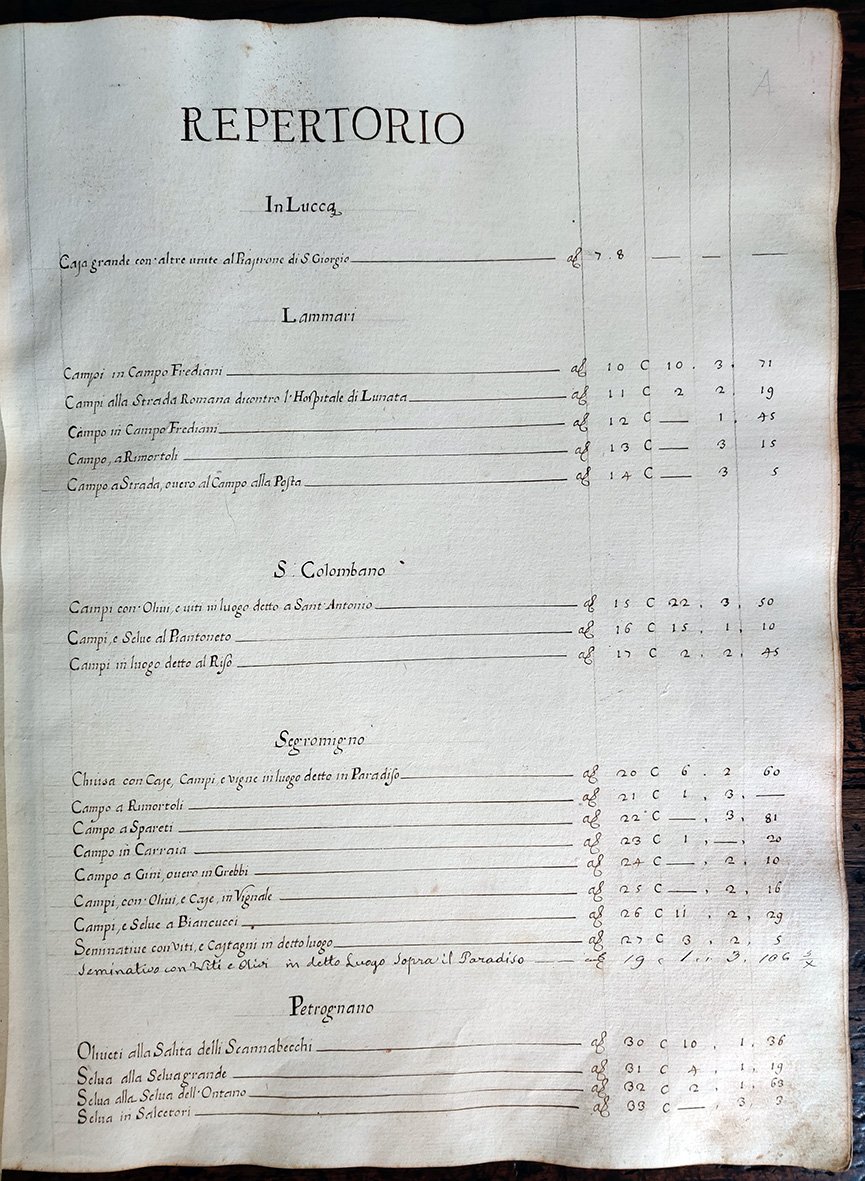 A
REPERTORIO
In Lucca
Casa grande con altre unite al Piastrone di S. Giorgio af 7. 8 — — —
Lammari
Campi in Campo Frediani af 10 C 10. 3. 71
Campi alla Strada Romana dicontro l'Hospitale di Lunata af 11 C 2 2. 19
Campo in Campo Frediani af 12 C — 1. 45
Campo, a Rimortoli af 13 C — 3 15
Campo a Strada, overo al Campo alla Posta af 14 C — 3 5
S. Colombano
Campi con Olivi, e viti in luogo detto a Sant'Antonio af 15 C 22. 3. 50
Campi, e Selve al Piantoneto af 16 C 15. 1. 10
Campi in luogo detto al Riso af 17 C 2. 2. 45
Segromigno
Chiusa con Case, Campi, e vigne in luogo detto in Paradiso af 20 C 6. 2 60
Campo a Rimortoli af 21 C 1. 3. —
Campo a Spareti af 22 C —. 3. 81
Campo in Carraia af 23 C 1. —. 20
Campo a Gini, overo in Grebbi af 24 C —. 2. 10
Campi, con Olivi, e Case, in Vignale af 25 C —. 2. 16
Campi, e Selve a Biancucci af 26 C 11. 2. 29
Seminative con viti, e Castagni in detto luogo af 27 C 3. 2. 5
Seminativo con Viti e Olivi in detto Luogo sopra il Paradiso af 19 c 1. 3. 106
Petrognano
Oliveti alla Salita delli Scannabecchi af 30 C 10. 1. 36
Selva alla Selvagrande af 31 C 4. 1. 19
Selva alla Selva dell'Ontano af 32 C 2. 1. 63
Selva in Salcetori af 33 C —. 3. 3